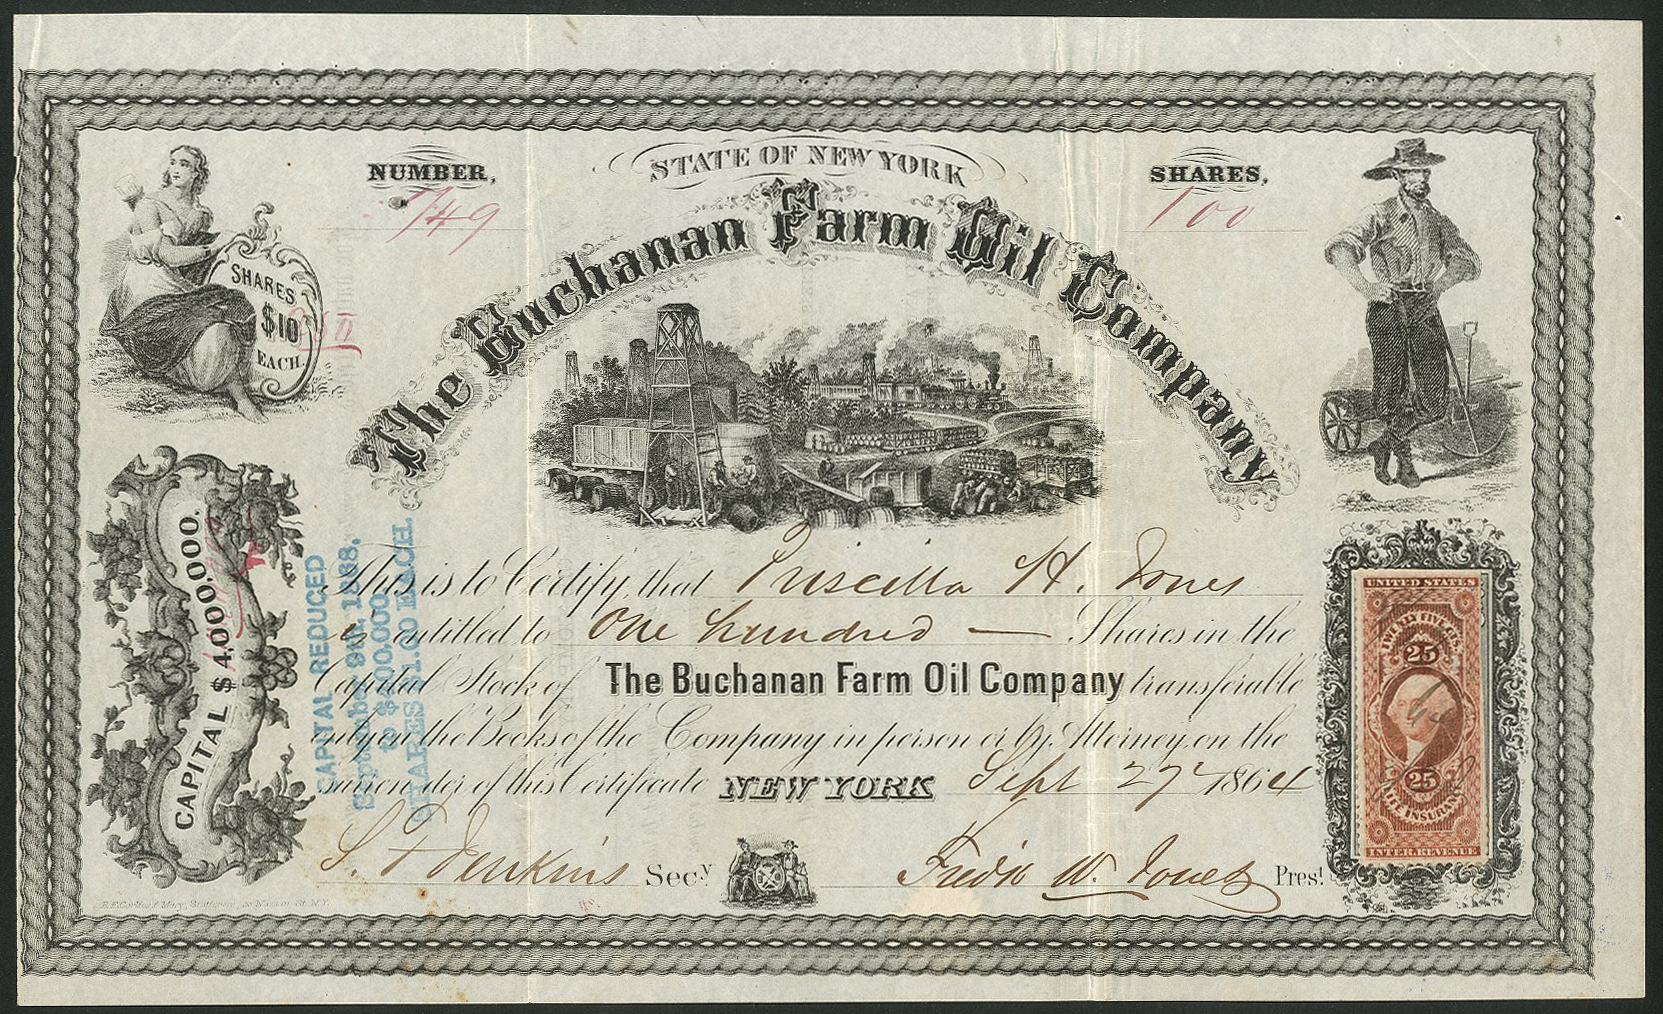 NUMBER,
749
STATE OF NEW YORK
SHARES,
100
The Buchanan Farm Oil Company
SHARES
$10
EACH.
CAPITAL $4,000,000.
CAPITAL REDUCED
September 9th, 1868,
to $400,000
SHARES $1.00 EACH.
This is to Certify, that Priscilla H. Jones
is entitled to One hundred — Shares in the
Capital Stock of The Buchanan Farm Oil Company transferable
only on the Books of the Company in person or by Attorney, on the
surrender of this Certificate NEW YORK Sept 27 1864
S. T. Jenkins Secy
Fredk W. Jones Prest
UNITED STATES
TWENTY FIVE CTS.
25
25
LIFE INSURANCE
INTER. REVENUE